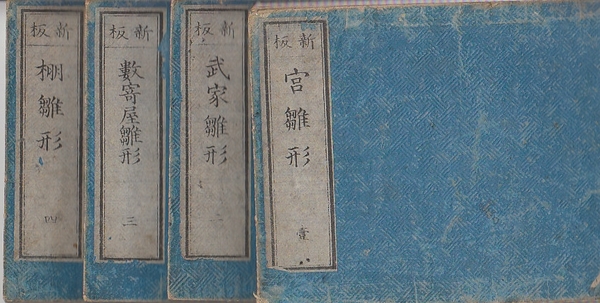 新板
宮雛形
壹
新板
武家雛形
二
新板
數寄屋雛形
三
新板
棚雛形
四